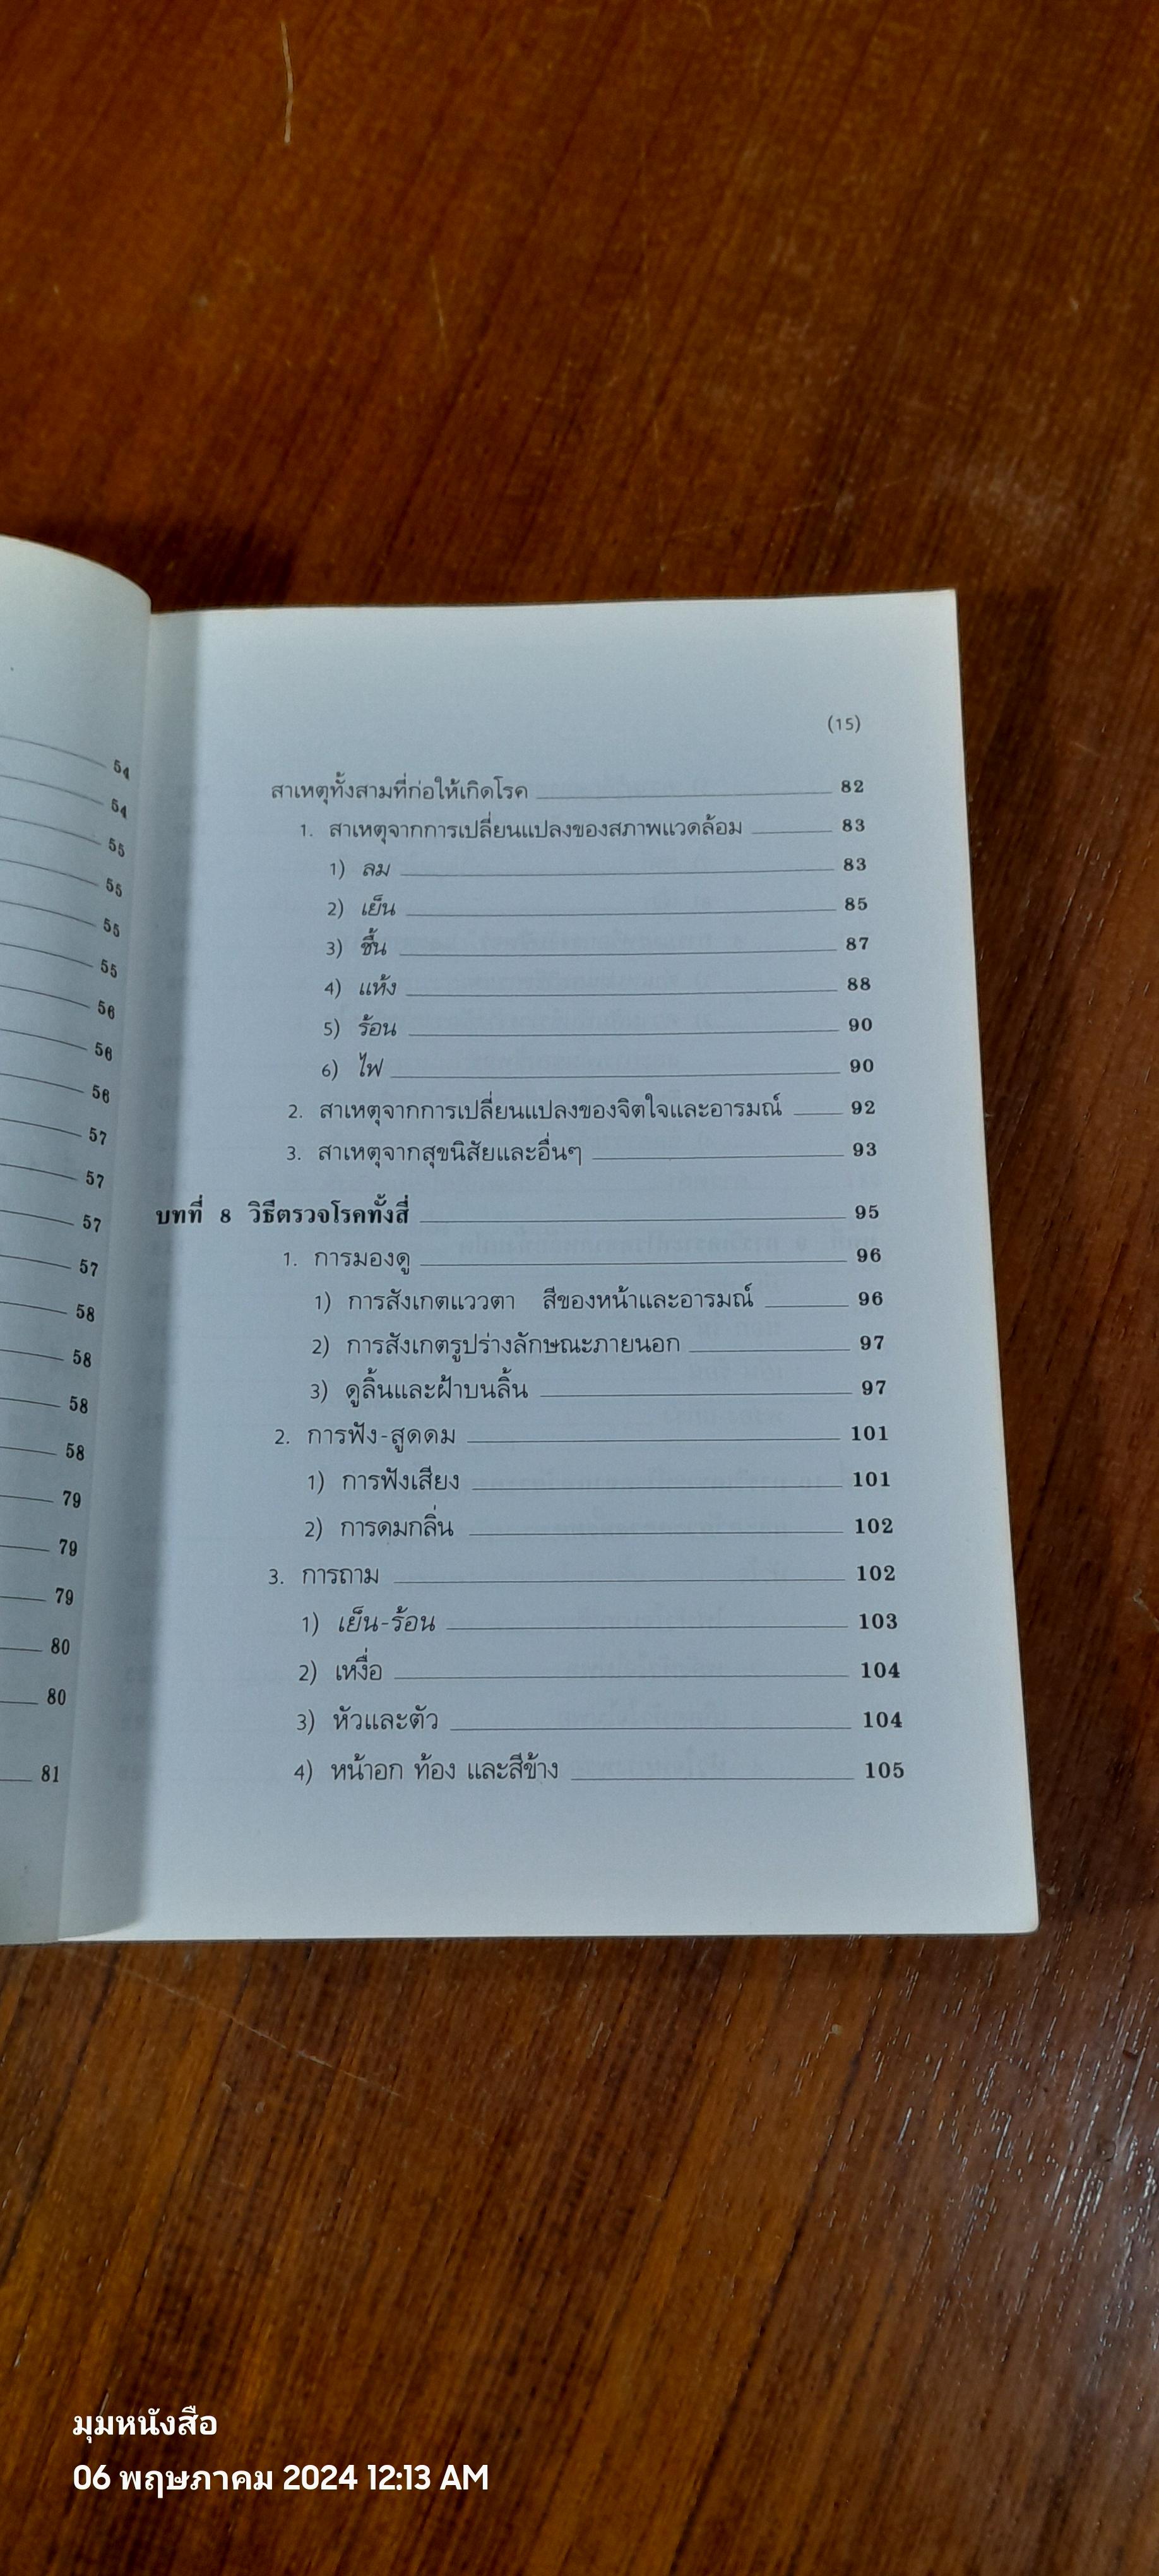 54
54
55
55
55
55
56
56
56
57
57
57
57
58
58
58
58
79
79
79
80
80
81
(15)
สาเหตุทั้งสามที่ก่อให้เกิดโรค 82
1. สาเหตุจากการเปลี่ยนแปลงของสภาพแวดล้อม 83
1) ลม 83
2) เย็น 85
3) ชื้น 87
4) แห้ง 88
5) ร้อน 90
6) ไฟ 90
2. สาเหตุจากการเปลี่ยนแปลงของจิตใจและอารมณ์ 92
3. สาเหตุจากสุขนิสัยและอื่นๆ 93
บทที่ 8 วิธีตรวจโรคทั้งสี่ 95
1. การมองดู 96
1) การสังเกตแววตา สีของหน้าและอารมณ์ 96
2) การสังเกตรูปร่างลักษณะภายนอก 97
3) ดูลิ้นและฝ้าบนลิ้น 97
2. การฟัง-สูดดม 101
1) การฟังเสียง 101
2) การดมกลิ่น 102
3. การถาม 102
1) เย็น-ร้อน 103
2) เหงื่อ 104
3) หัวและตัว 104
4) หน้าอก ท้อง และสีข้าง 105
มุมหนังสือ
06 พฤษภาคม 2024 12:13 AM